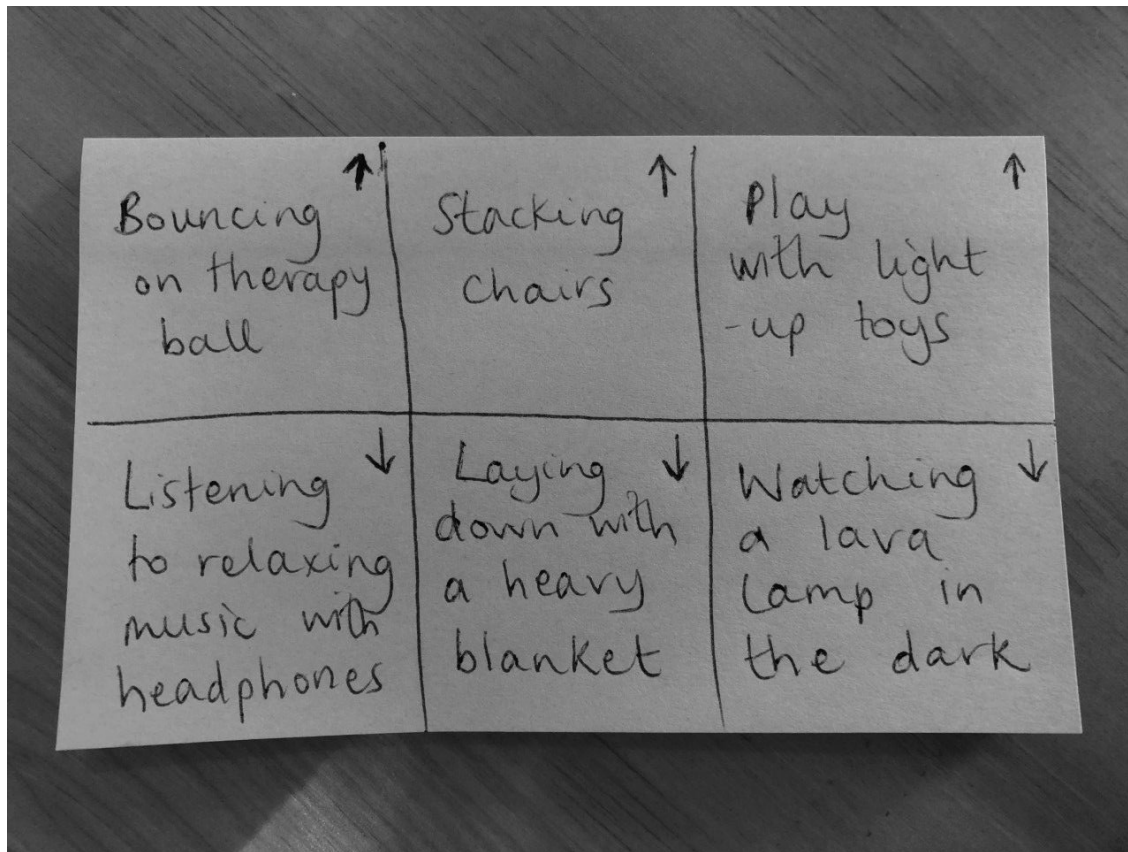 Bouncing ↑
on therapy
ball
Stacking ↑
chairs
Play ↑
with light
-up toys
Listening ↓
to relaxing
music with
headphones
Laying ↓
down with
a heavy
blanket
Watching ↓
a lava
lamp in
the dark